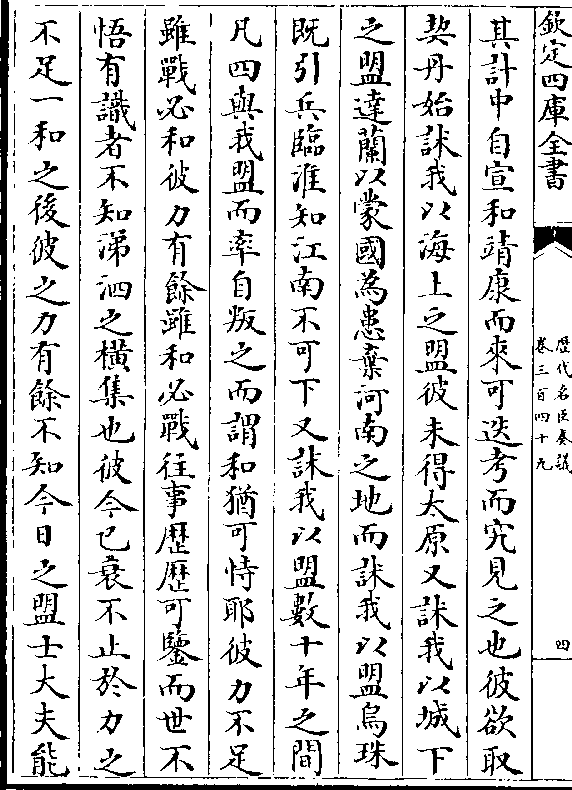 欽定四庫全書
歷代名臣奏議
卷三百四十九
四
其計中自宣和靖康而來可迭考而究見之也彼欲取
契丹始訹我以海上之盟彼未得太原又訹我以城下
之盟達蘭以蒙國為患棄河南之地而訹我以盟烏珠
既引兵臨淮知江南不可下又訹我以盟數十年之間
凡四與我盟而率自叛之而謂和猶可恃耶彼力不足
雖戰必和彼力有餘雖和必戰往事歴歴可鑒而世不
悟有識者不知涕泗之橫集也彼今已衰不止於力之
不足一和之後彼之力有餘不知今日之盟士大夫能